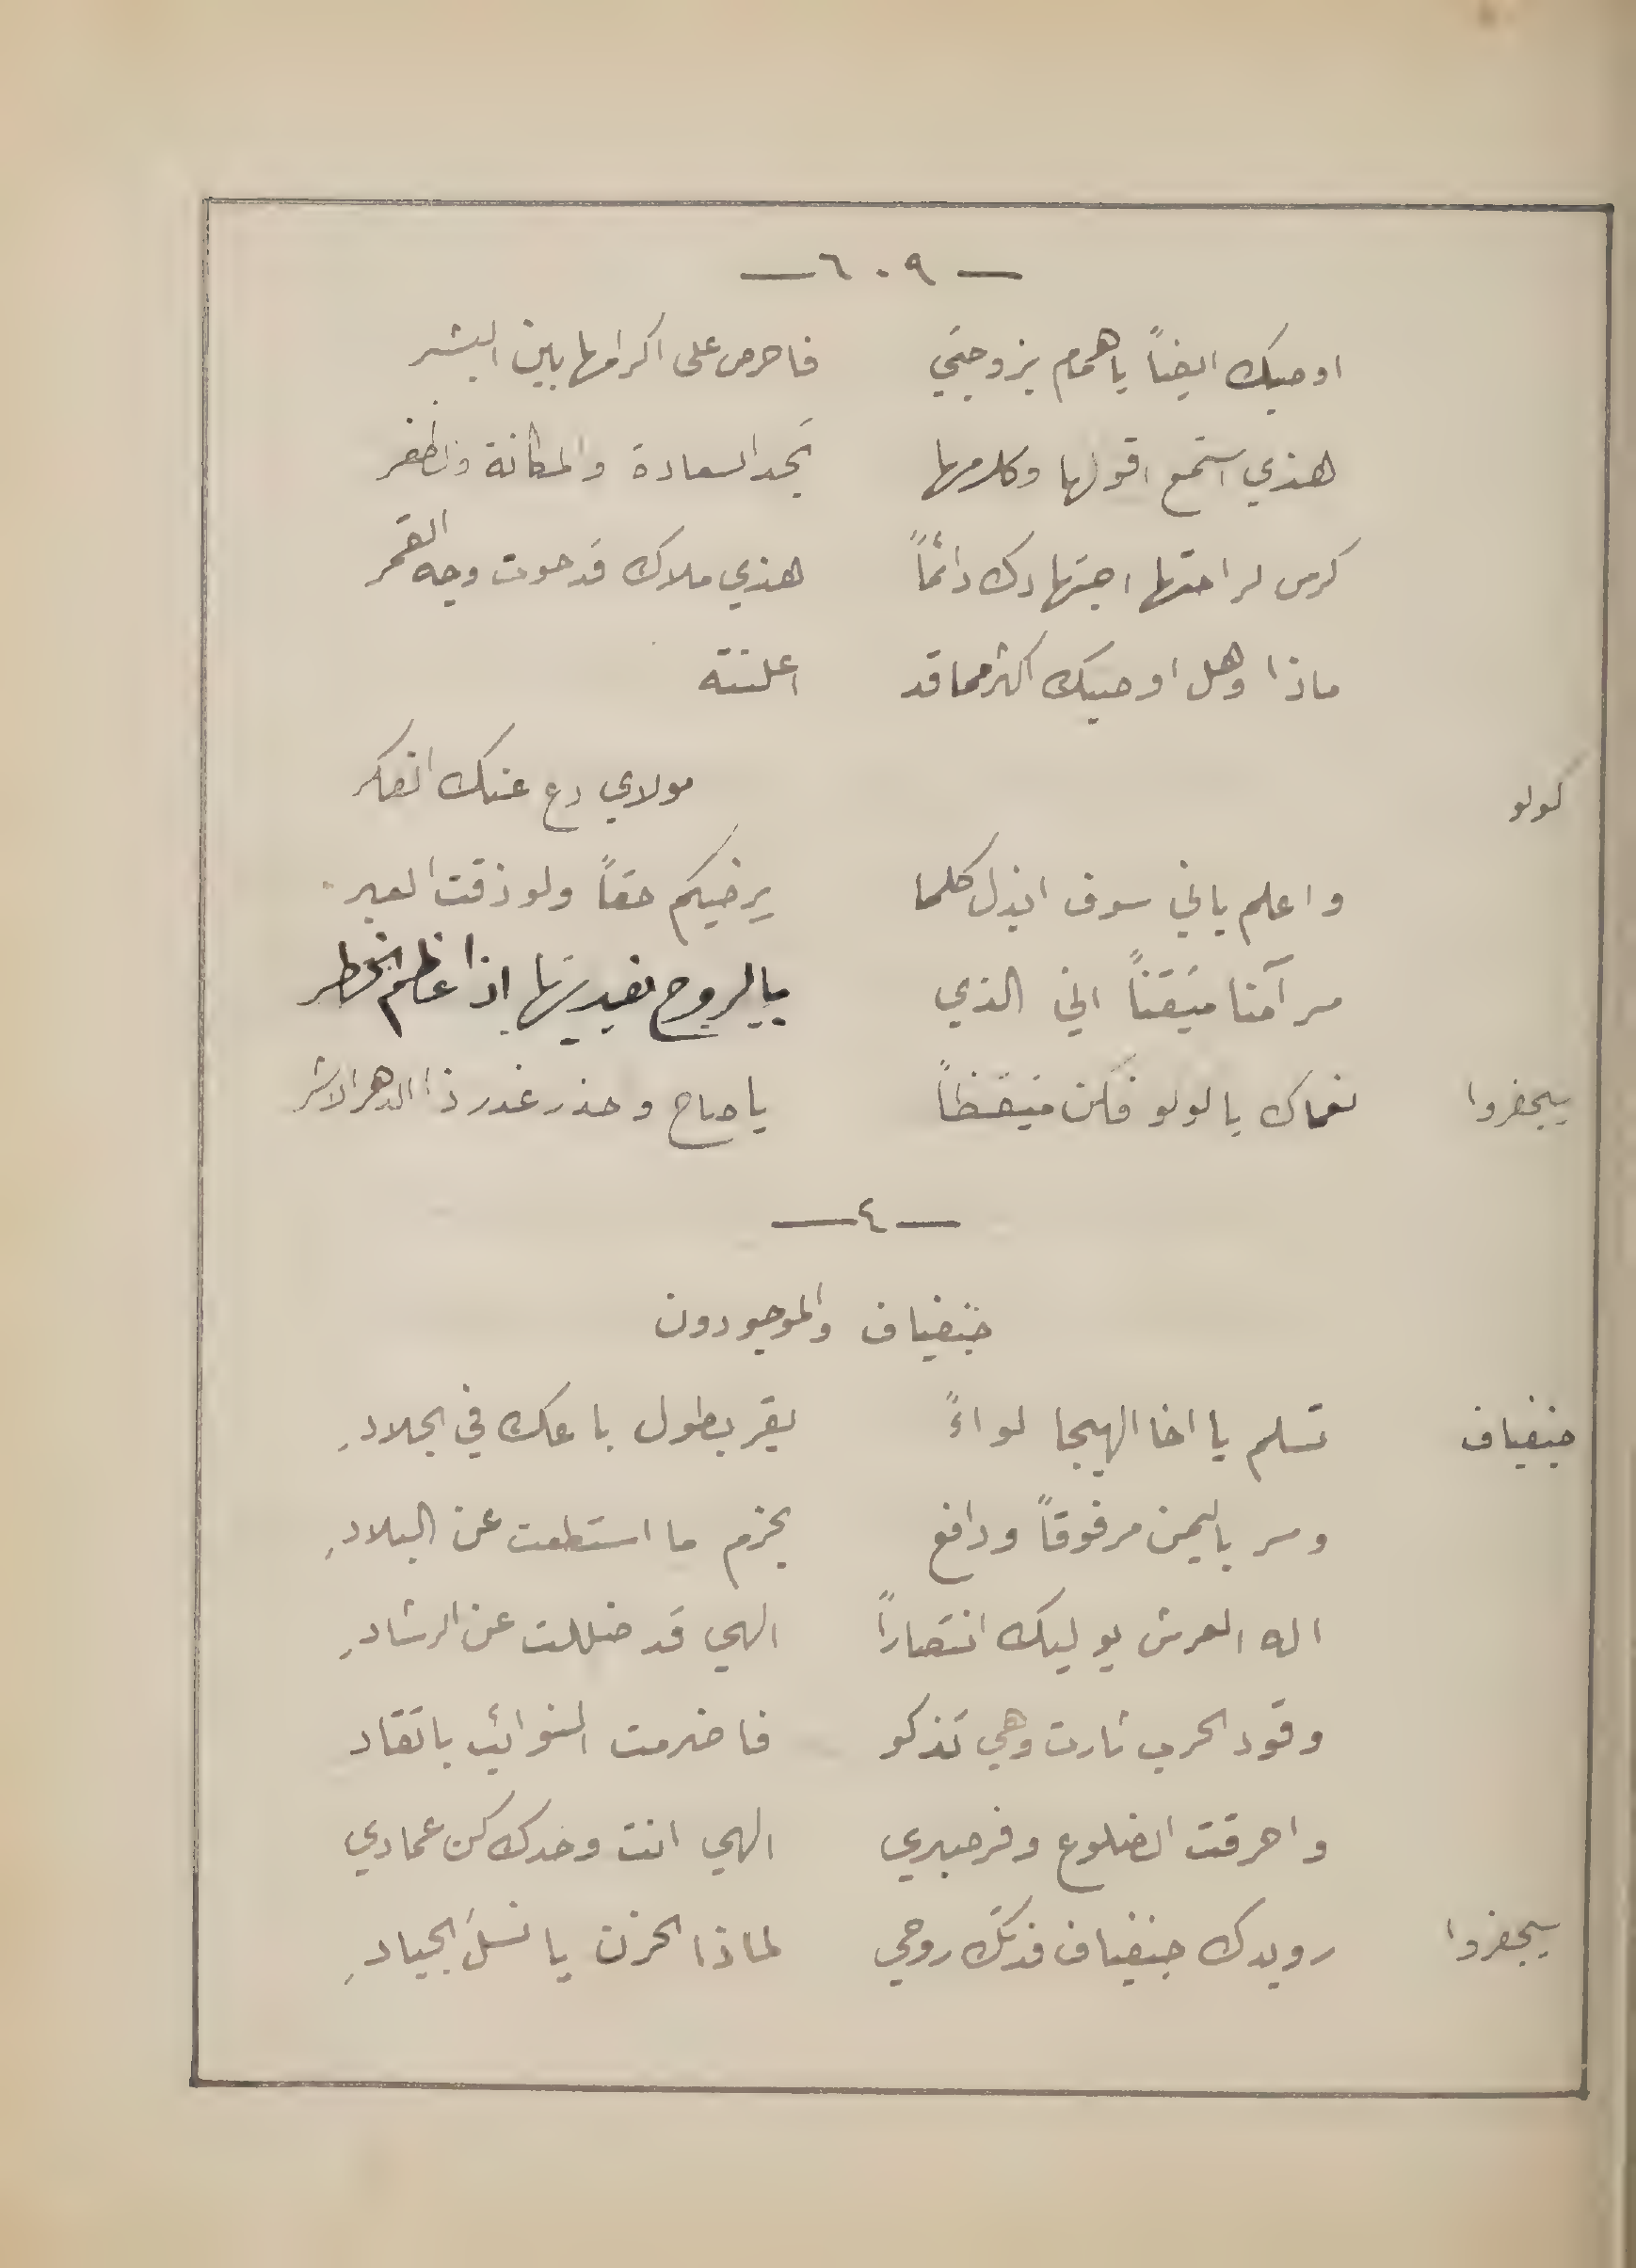 — ٦٠٩ —
اوصيك ايضاً يا همام بزوجتي فاحرص على اكرامها بين البشر
هذي استمع اقولها وكلامها تجد السعادة والمكانة والظفر
كرس لراحتها اجتهادك دائماً هذي ملاك قد حوت وجه القمر
ماذا وهل اوصيك اكثر مما قد اعلنته
لولو مولاي دع عنك الفكر
واعلم باني سوف ابذل كلما يرضيكم حقاً ولو ذقت العبر
سر آمنا متيقناً اني الذي بالروح يفديها اذا عظم الخطر
سيجفروا نعماك يا لولو فكن متيقظاً يا صاح وحذر غدر ذا الدهر الاشر
— ٤ —
جنفياف والموجودون
جنفياف تسلم يا اخا الهيجا لواءً يقر بطول باعك في الجلادِ
وسر باليمن مرفوقاً ودافع بحزم ما استطعت عن البلادِ
اله العرش يوليك انتصاراً الهي قد ضللت عن الرشادِ
وقود الحرب ثارت وهي تذكو فاضرمت النوائب باتقاد
واحرقت الضلوع وفر صبري الهي انت وحدك كن عمادي
سيجفروا رويدك جنفياف فدتك روحي لماذا الحزن يا نسلَ الجيادِ